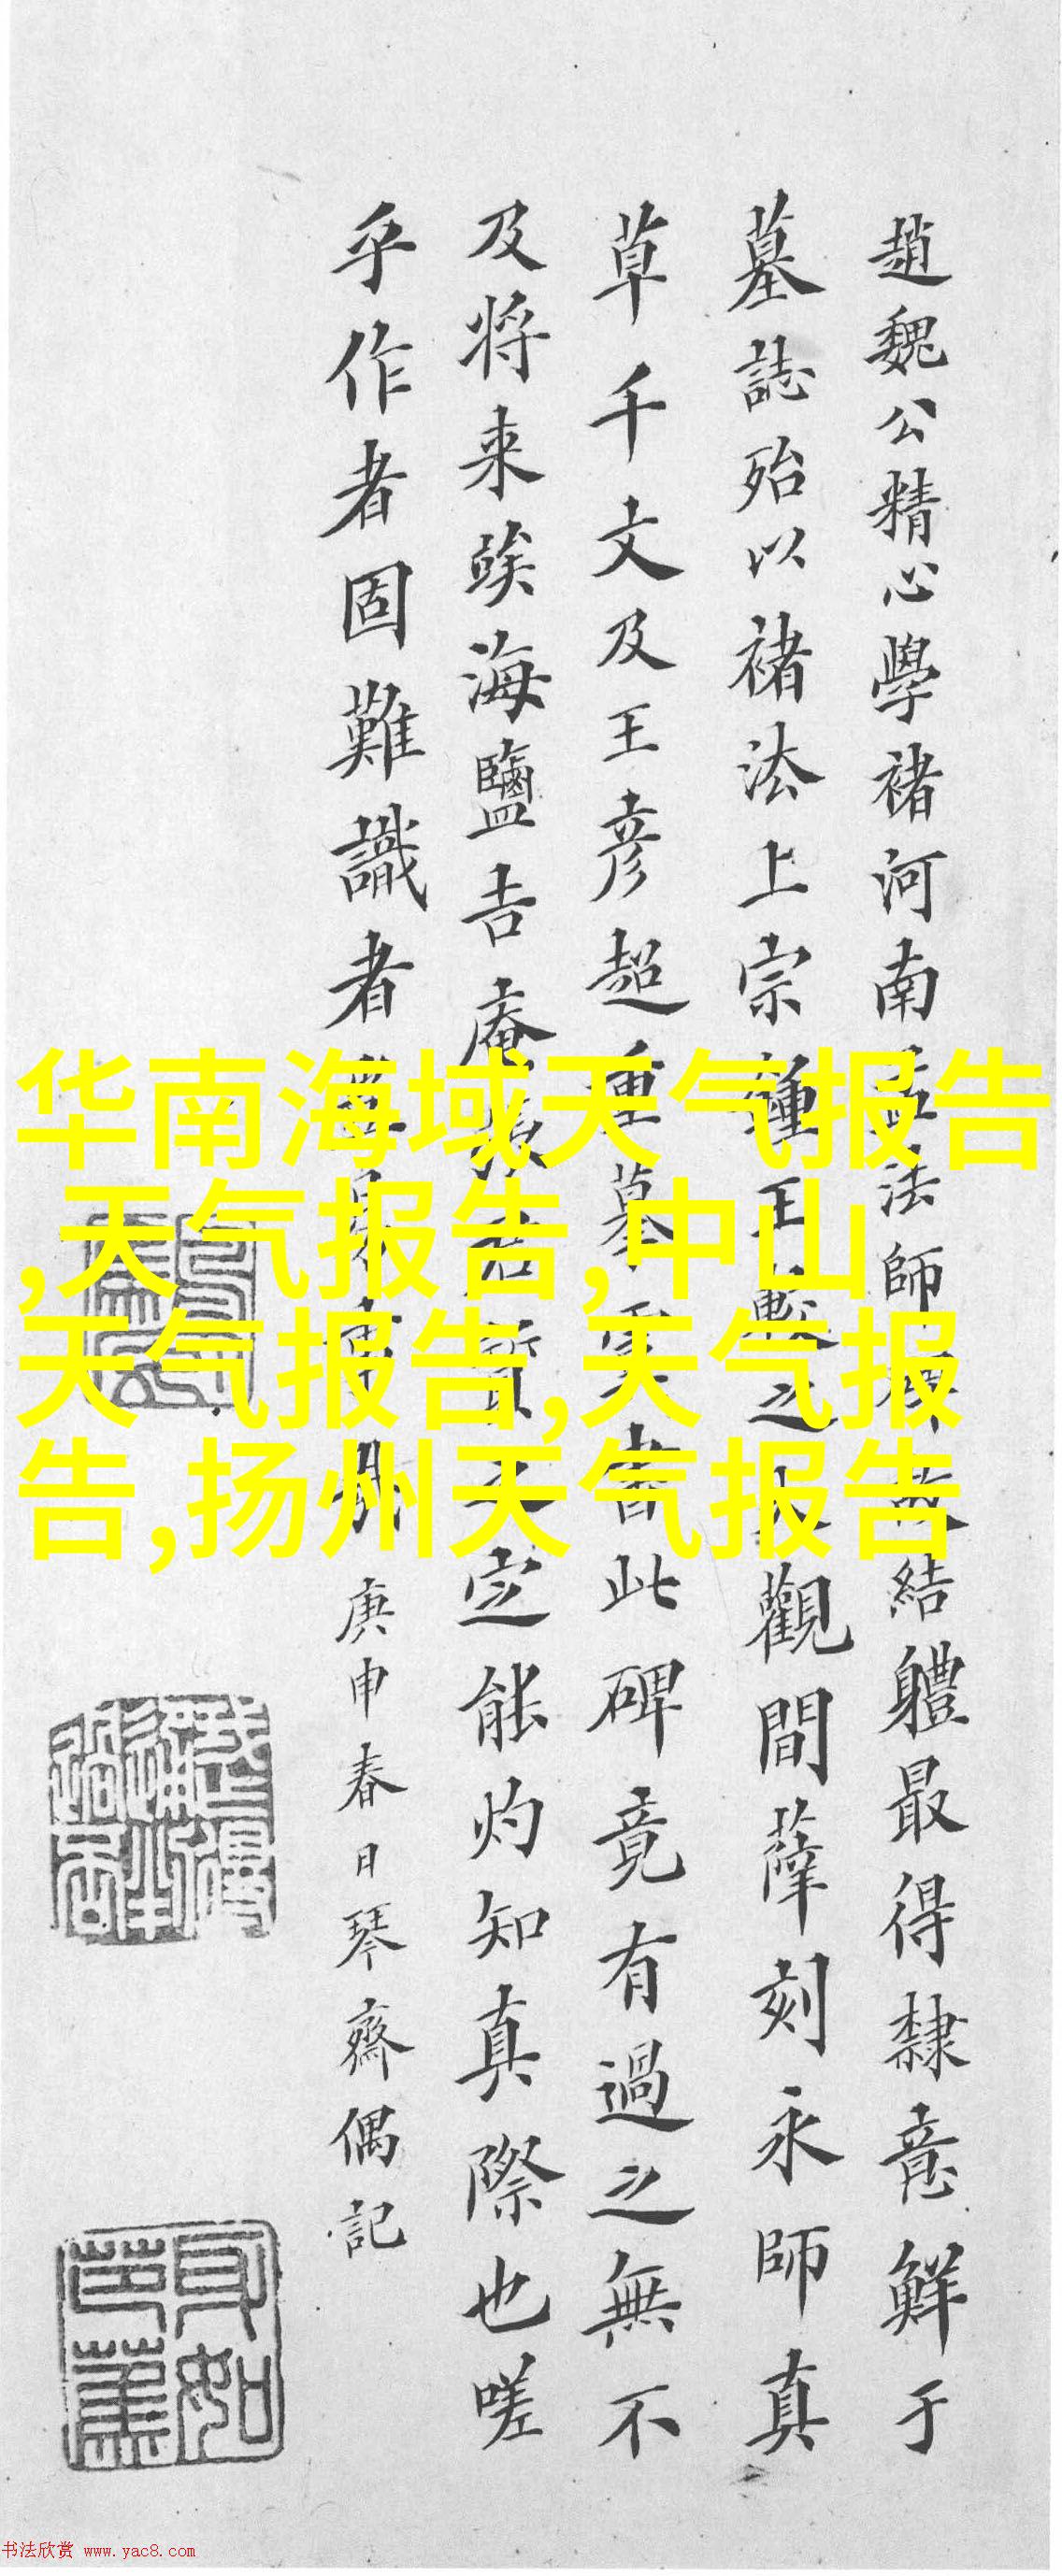 趙魏公精心學褚河南孟法師碑故結軆最得隸意鮮于
墓誌殆以褚法上宗鍾王較之大觀間薛刻永師真
草千文及王彦超重墓虞書此碑竟有過之無不
及将来竢海鹽吉庵
定能灼知真際也嗟
乎作者固難識者
庚申春日琴齋偶記
华南海域天气报告
,天气报告,中山
天气报告,天气报
告,扬州天气报告
书法欣赏 www.yac8.com